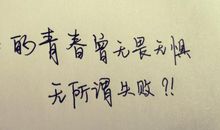 的青春曾无畏无惧
无所谓失败?!!